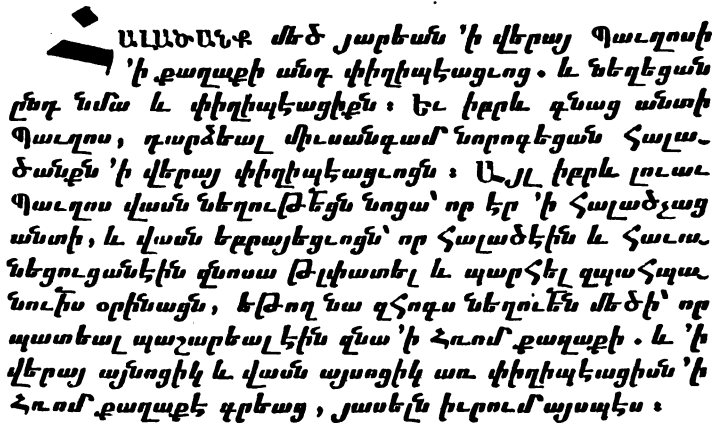 ՀԱԼԱԾԱՆՔ մեծ յարեան 'ի վերայ Պաւղոսի
'ի քաղաքի անդ փիղիպէացւոց. և նեղեցան
ընդ նմա և փիղիպէացիքն : Եւ իբրև գնաց անտի
Պաւղոս, դարձեալ միւսանգամ նորոգեցան Հալա-
ծանքն 'ի վերայ փիղիպէացւոցն : Այլ իբրև լուաւ
Պաւղոս վասն նեղութեցն նոցա՝ որ էր 'ի Հալածչաց
անտի, և վասն եբրայեցւոցն՝ որ Հալածէին և Հաւա-
նեցուցանէին զնոսա թլփատել և պարՀել զպաՀպա
նուիս օրինացն, եթող նա զՀոգս նեղուեն մեծի՝ որ
պատեալ պաշարեալ էին զնա 'ի Հռոմ քաղաքի. և 'ի
վերայ այնոցիկ և վասն այսոցիկ առ փիղիպէացիսն 'ի
Հռոմ քաղաքէ գրեաց, յասելն իւրում այսպէս :